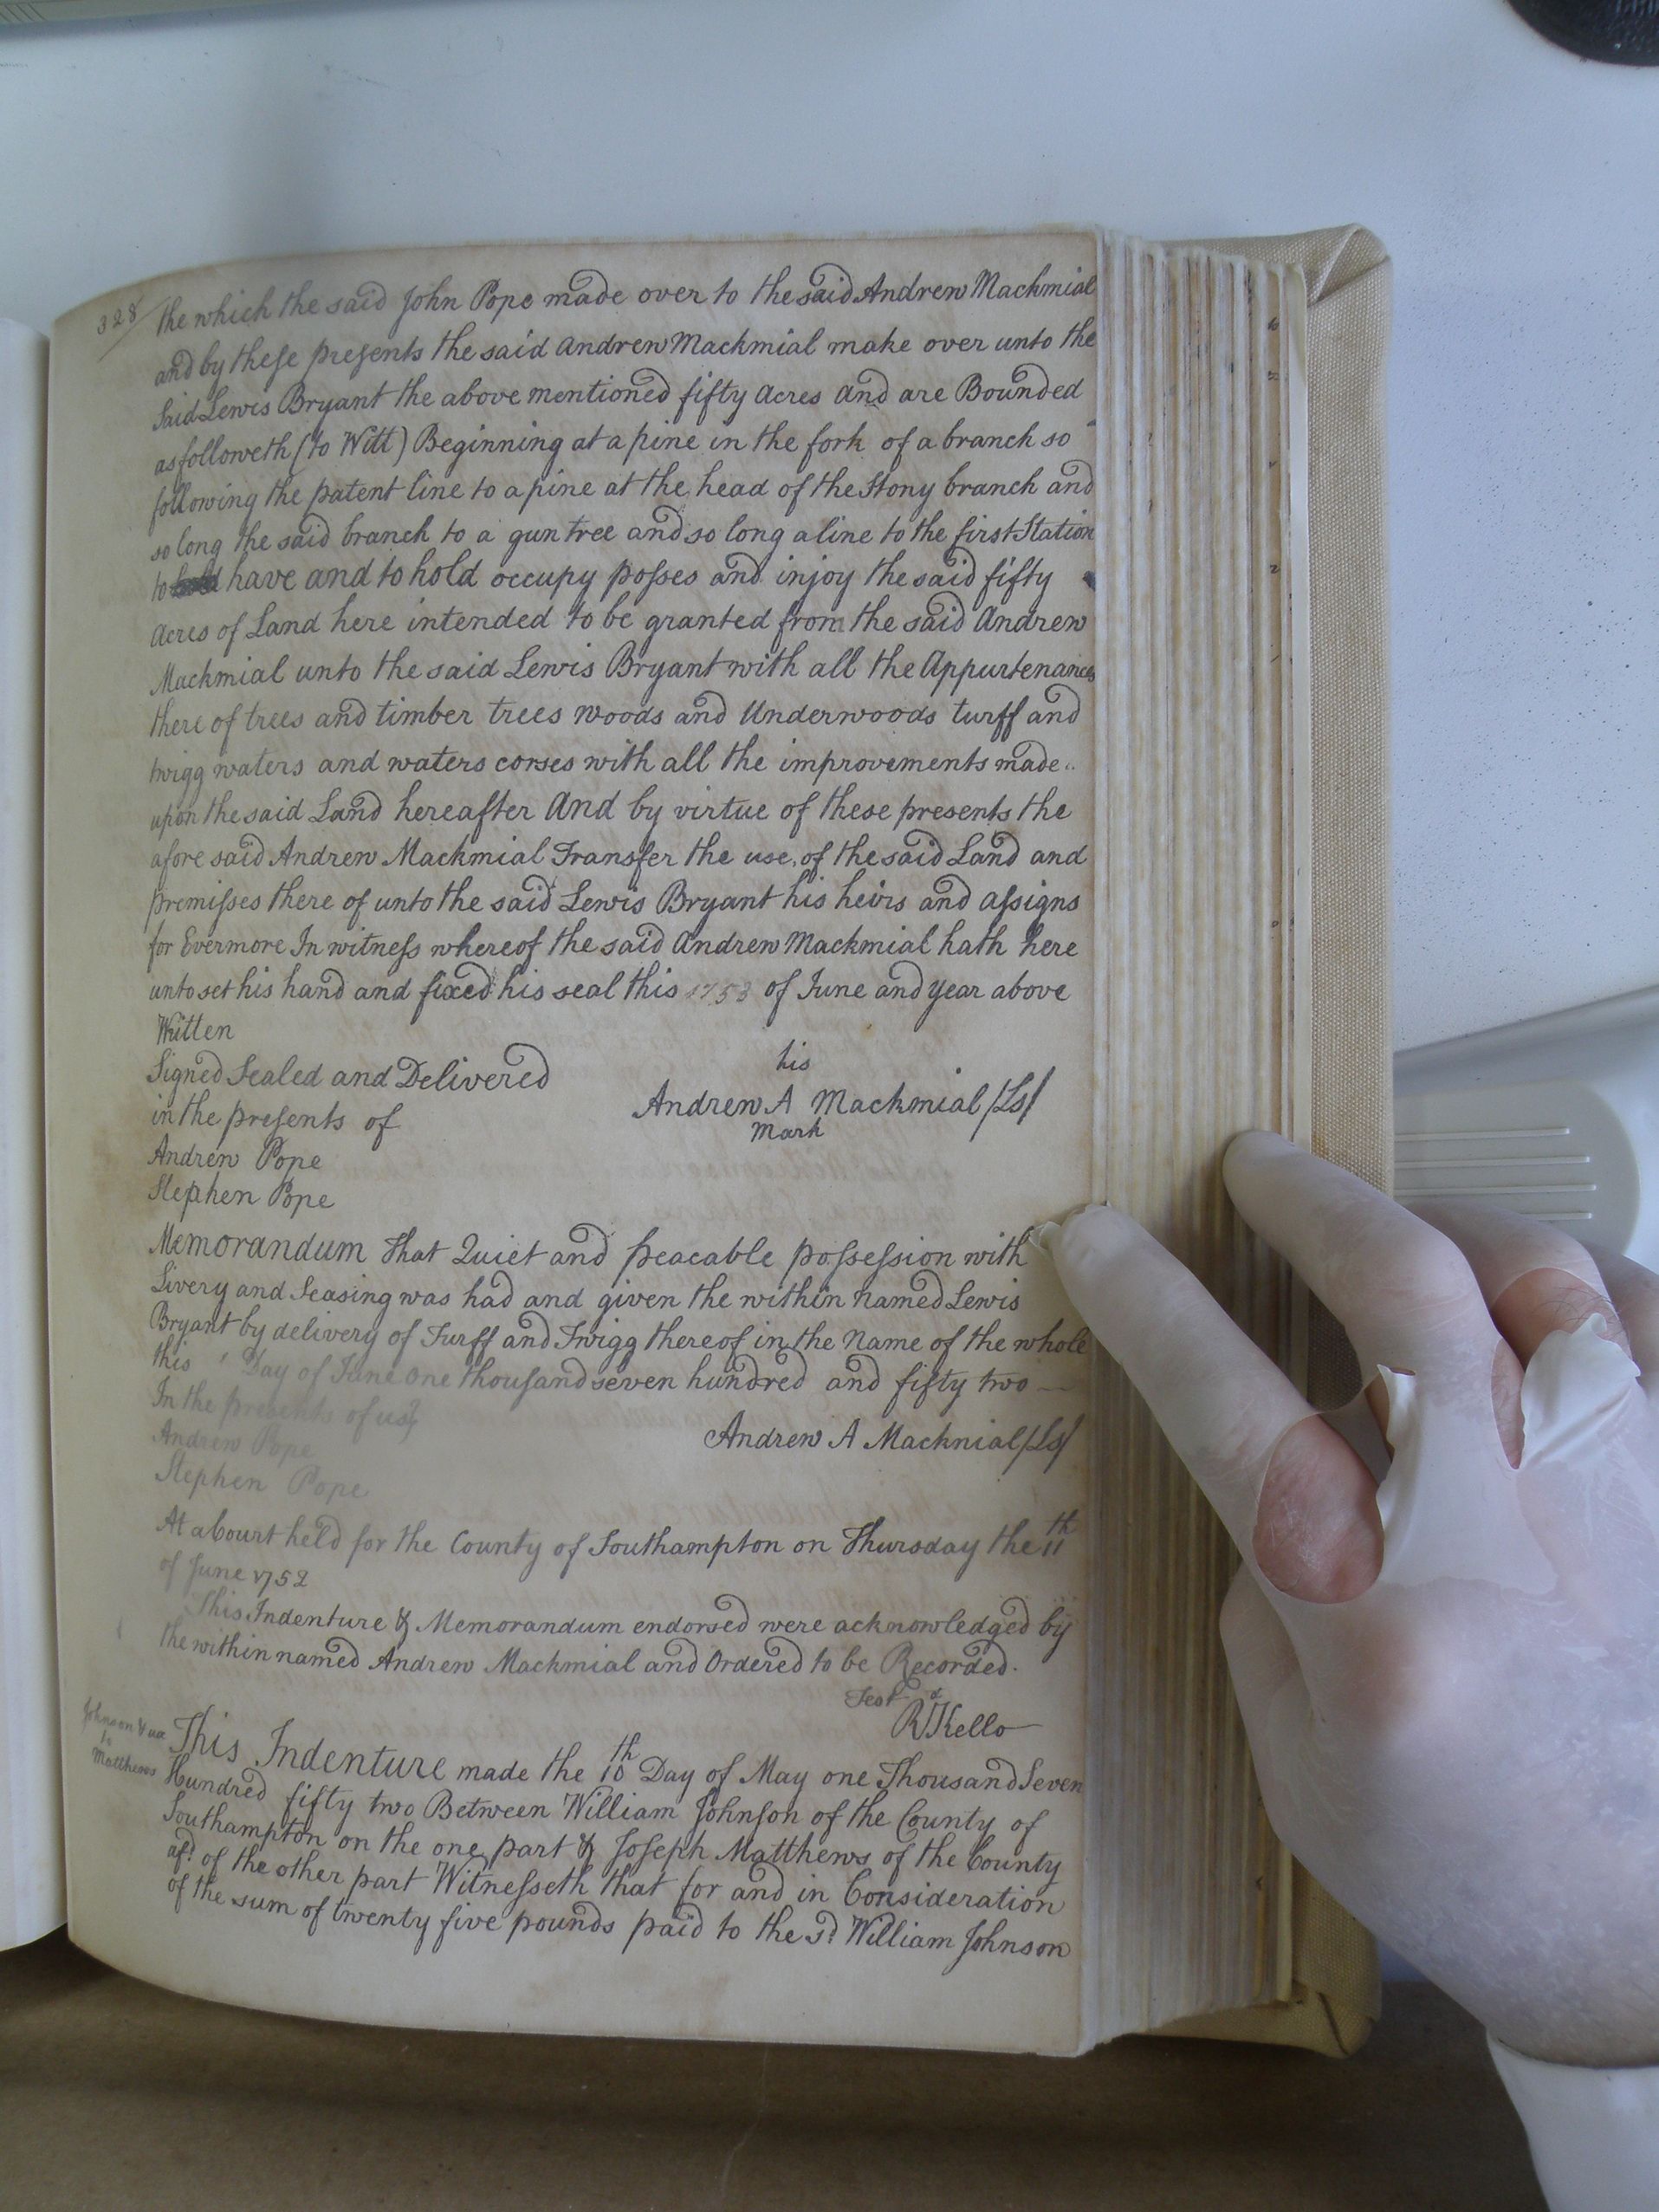 328
the which the said John Pope made over to the said Andrew Mackmial
and by these presents the said Andrew Mackmial make over unto the
said Lewis Bryant the above mentioned fifty Acres and are Bounded
as followeth (to Witt) Beginning at a pine in the fork of a branch so
following the patent line to a pine at the head of the Stony branch and
so long the said branch to a gun tree and so long a line to the first Station
to have and to hold occupy posses and injoy the said fifty
Acres of Land here intended to be granted from the said Andrew
Mackmial unto the said Lewis Bryant with all the Appurtenances
there of trees and timber trees woods and Underwoods turff and
twigg waters and waters corses with all the improvements made
upon the said Land hereafter And by virtue of these presents the
afore said Andrew Mackmial Transfer the use of the said Land and
premisses there of unto the said Lewis Bryant his heirs and assigns
for Evermore In witness whereof the said Andrew Mackmial hath here
unto set his hand and fixed his seal this 1753 of June and year above
Written
Signed Sealed and Delivered
in the presents of
his
Andrew A Mackmial /Ls/
Mark
Andrew Pope
Stephen Pope
Memorandum That Quiet and peacable possession with
Livery and Seasing was had and given the within named Lewis
Bryant by delivery of Turff and Twigg thereof in the Name of the whole
this Day of June one thousand seven hundred and fifty two
In the presents of us
Andrew Pope
Andrew A Macknial /Ls/
Stephen Pope
At a Court held for the County of Southampton on Thursday the 11th
of June 1752
This Indenture & Memorandum endorsed were acknowledged by
the within named Andrew Mackmial and Ordered to be Recorded.
Test
Rd Kello
Johnson & ux
to
Matthews
This Indenture made the 10th Day of May one Thousand Seven
Hundred fifty two Between William Johnson of the County of
Southampton on the one part & Joseph Matthews of the County
afd. of the other part Witnesseth that for and in Consideration
of the sum of twenty five pounds paid to the sd. William Johnson